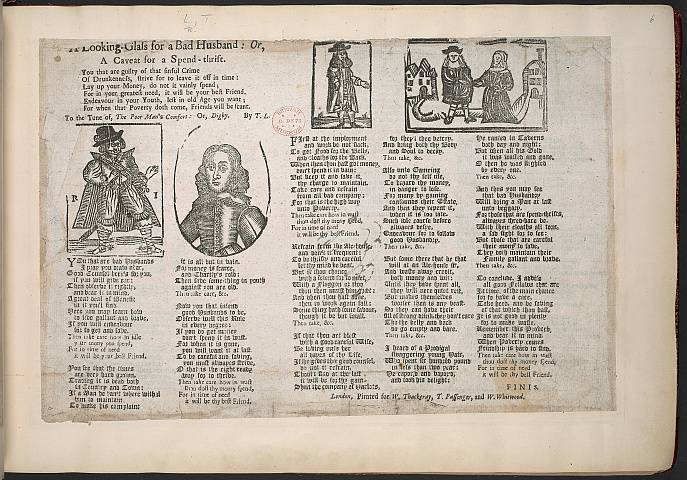 L, T
6
A Looking-Glass for a Bad Husband: Or,
A Caveat for a Spend-thrift.
You that are guilty of that sinful Crime
Of Drunkenness, strive for to leave it off in time:
Lay up your Money, do not it vainly spend;
For in your greatest need, it will be your best Friend.
Endeavour in your Youth, lest in old Age you want;
For when that Poverty doth come, Friends will be scant.
To the Tune of, The Poor Man's Comfort: Or, Digby. By T. L.
YOu that are bad Husbands
I pray you draw near;
Good Counsel here's for you,
if you will give ear:
Then observe it rightly,
and bear it in mind,
A great deal of Benefit
in it you'l find.
Here you may learn how
to live gallant and brave,
If you will endeavour
for to get and save.
Then take care now in
your money you hoord,
in time of need
it will be your best Friend.
You see that the times
are very hard grown,
Trading it is dead both
in Country and Town:
If a Man he want where withal
him to maintain,
To make his complaint
it is all but in vain.
For money is scarce,
and Charity's cold;
Then save something in youth
against you are old.
Then take care, &c.
Now you that intend
good Husbands to be,
Observe well this Rule
in every degree:
If you do get money
don't spend it in waste,
For when it is gone,
you will want it at last.
To be careful and saving,
you must always strive,
O that is the right ready
way for to thrive.
Then take care how in wast
thou dost thy money spend,
For in time of need
it will be thy best Friend.
FIrst at thy imployment
and work do not slack,
To get Food for the Belly,
and cloaths for the Back.
When then thou hast got money,
don't spend it in vain;
But keep it and save it,
thy charge to maintain.
Take care and refrain
from all bad company;
For that is the high way
unto Poverty.
Then take care how in wast
thou dost thy money spend,
For in time of need
it will be thy best Friend.
Refrain from the Ale-house,
and don't it frequent;
To be thrifty and careful
let thy mind be bent.
But if thou chance
With a Flaggon or two
then thou must drink;
And when thou hast done,
then to work again fall:
Some thing doth some savour,
though it be but small.
Then take, &c.
If that thou art blest
with a good careful Wife,
Be loving unto her
all dayes of thy Life.
If she gives thee good counsel,
do not it refrain.
Thou'lt find at the last
it will be for thy gain.
Shun the company of Harlots,
for they'l thee betray,
And bring both thy Body
and Soul to decay.
Then take, &c.
Also unto Gameing
do not thy self use,
To hazard thy money,
in danger to lose.
For many by gaming
consumes their Estate,
And then they repent it,
when it is too late.
Such idle course before
always despise,
Endeavour for to follow
good Husbandry.
Then take, &c.
But some there that by that
will at an Ale-house sit,
And waste away their
both money and wit:
Until they have spent all,
they will never quite rest,
But makes themselves
worser than is any beast.
So they can have their
fill of strong drink, they don't care
Tho' the belly and back
do go empty and bare.
Then take, &c.
I heard of a Prodigal
swaggering young Blade,
Who spent six hundred pound
in less than two year;
He vapor'd and danc'd,
and took his delight:
He roared in Taverns
both day and night:
But when all his Gold
it was wasted and gone,
O then he was slighted
by every one.
Then take, &c.
And thus you may see
that bad Husbandry
Will bring a Man at last
unto beggary.
For those that are spend-thrifts,
always thred-bare be,
With their cloaths all torn,
a sad sight for to see:
But those that are careful
their money to save,
They doth maintain their
Family gallant and brave.
Then take, &c.
To conclude, I advise
all good Fellows that are
At time, of the main chance
for to have a care.
Take heed, and be saving
of that which thou hast,
It is not good in plenty
for to make waste.
Remember this Proverb,
and bear it in mind,
When Poverty comes
Friendship is hard to find.
Then take care how in wast
thou dost thy money spend,
For in time of need
it will be thy best Friend.
FINIS.
London, Printed for W. Thackeray, T. Passenger, and W. Whitwood.